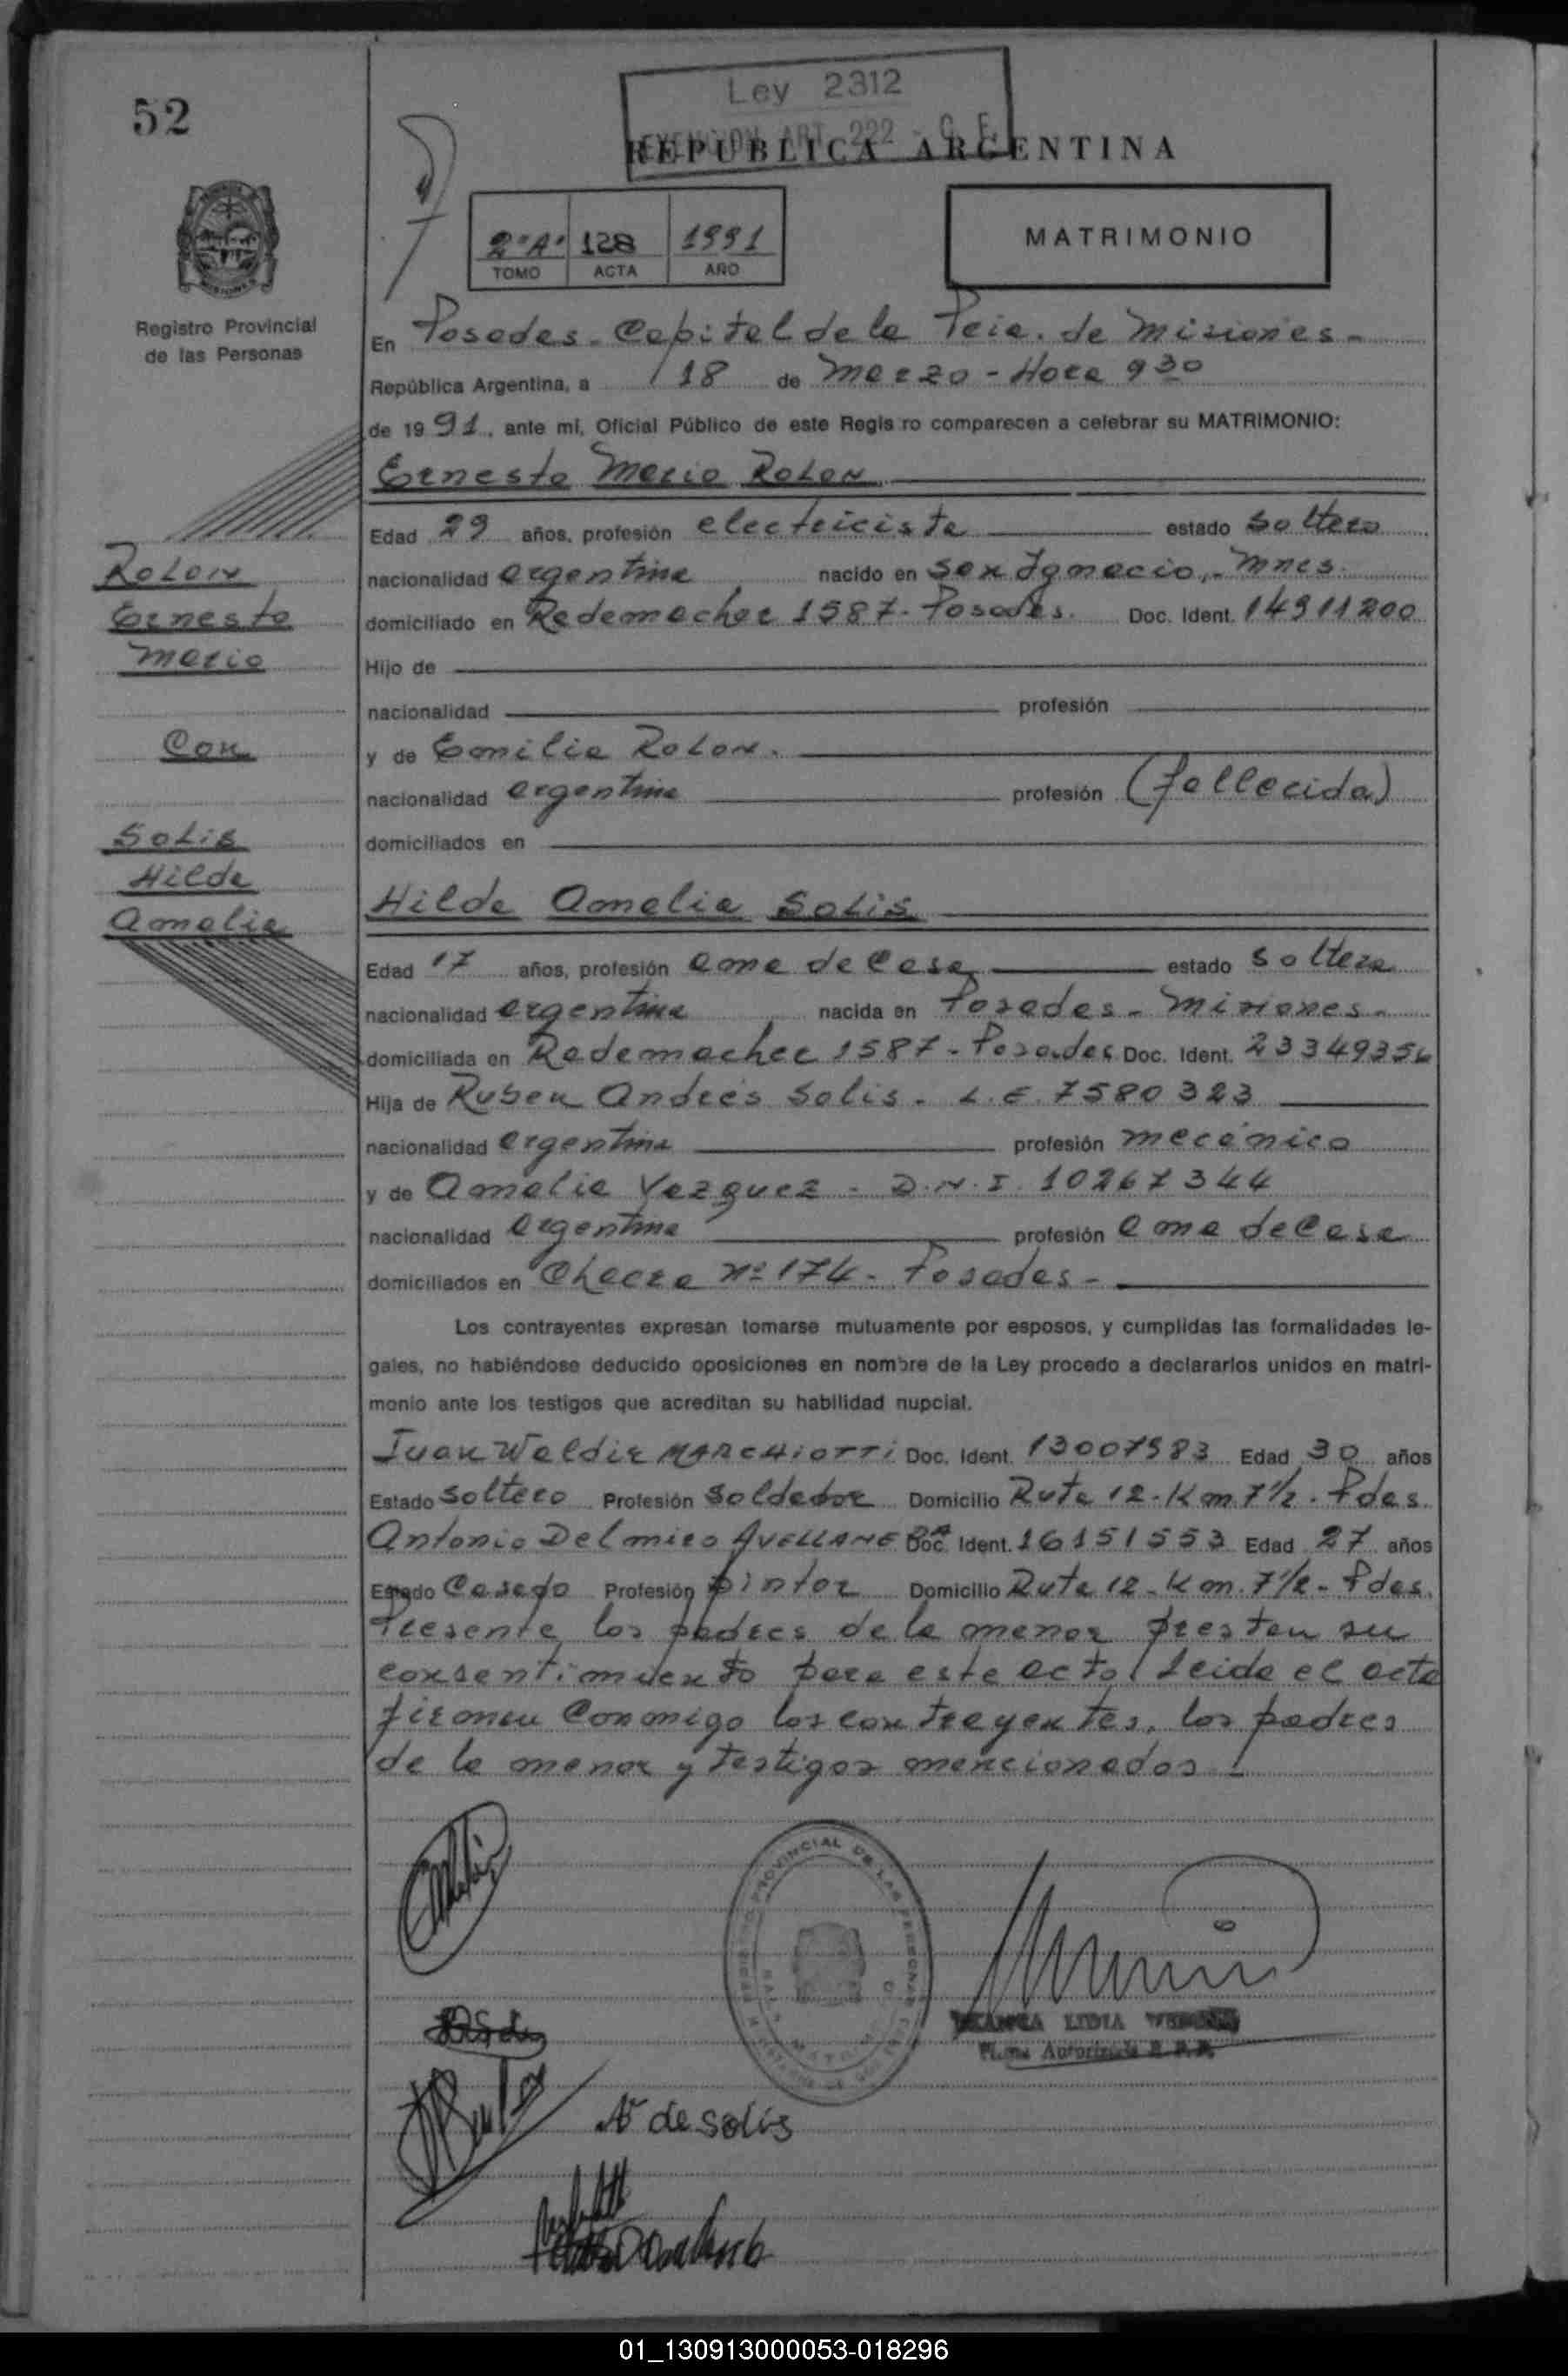 52
Ley 2312
EXENCION ART. 222 - C. F.
REPUBLICA ARGENTINA
2º"A" 128 1991
TOMO ACTA AÑO
MATRIMONIO
Registro Provincial
de las Personas
En Posadas - Capital de la Pcia. de Misiones -
República Argentina, a 18 de Marzo - Hora 9 30
de 1991, ante mi, Oficial Público de este Regis ro comparecen a celebrar su MATRIMONIO:
Ernesto Mario Rolon
Edad 29 años, profesión electricista estado soltero
nacionalidad argentina nacido en San Ignacio, - Mnes.
domiciliado en Rademacher 1587 - Posadas. Doc. Ident. 14911200
Hijo de
nacionalidad profesión
y de Emilia Rolon.
nacionalidad argentina profesión (fallecida)
domiciliados en
Rolon
Ernesto
Mario
Con
Solis
Hilda
Amalia
Hilda Amalia Solis
Edad 17 años, profesión ama de casa estado soltera
nacionalidad argentina nacida en Posadas - Misiones -
domiciliada en Rademacher 1587 - Posadas Doc. Ident. 23349356
Hija de Ruben Andrés Solis - L.E. 7580323
nacionalidad argentina profesión mecánico
y de Amalia Vazquez - D.N.I. 10267344
nacionalidad argentina profesión ama de casa
domiciliados en Chacra Nº 174 - Posadas -
Los contrayentes expresan tomarse mutuamente por esposos, y cumplidas las formalidades le-
gales, no habiéndose deducido oposiciones en nombre de la Ley procedo a declararlos unidos en matri-
monio ante los testigos que acreditan su habilidad nupcial.
Juan Waldir MARCHIOTTI Doc. Ident. 13007583 Edad 30 años
Estado soltero Profesión soldador Domicilio Ruta 12 - Km. 7½ - Pdas.
Antonio Delmiro AVELLANEDA Doc. Ident. 16151553 Edad 27 años
Estado Casado Profesión pintor Domicilio Ruta 12 - Km. 7½ - Pdas.
Presente los padres de la menor prestan su
consentimiento para este acto / Leida el acta
firman conmigo los contrayentes, los padres
de la menor y testigos mencionados /
REGISTRO PROVINCIAL DE LAS PERSONAS
LIDIA
Firma Autorizada R. P. P.
A. V de solis
01_130913000053-018296